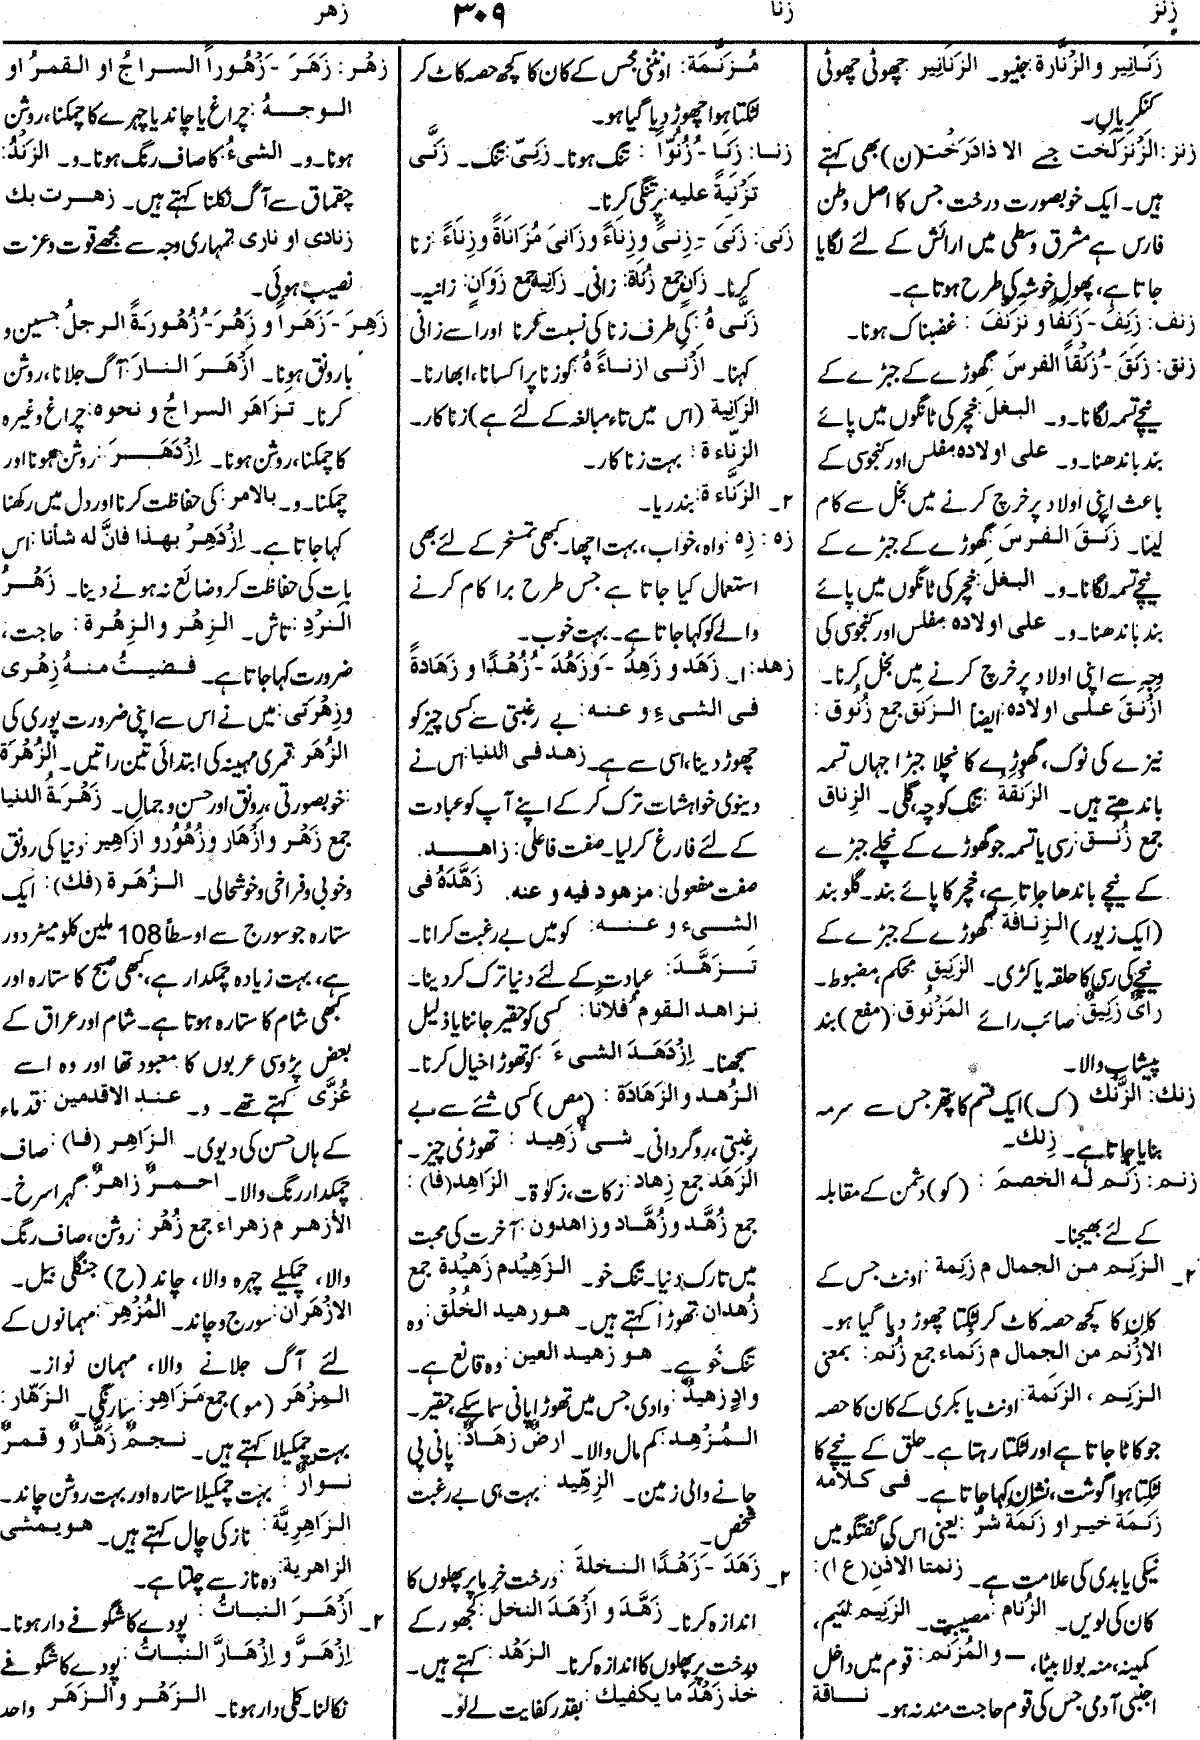 زنز
زنا
۳۰۹
زهر
زَنَانِير و الزُّنَّارة: جنیو۔ الزَنَانِير: چھوٹی چھوٹی
کنکریاں۔
زنز: الزَنزلَخت جسے الا ذادرَخت (ن) بھی کہتے
ہیں۔ ایک خوبصورت درخت جس کا اصل وطن
فارس ہے مشرق وسطٰی میں ارائش کے لئے لگایا
جاتا ہے، پھول خوشہ کی طرح ہوتا ہے۔
زنف: زَنِفَ - زَنَفًا و تزنَفَ: غضبناک ہونا۔
زنق: زَنَقَ - زَنْقًا الفرسَ: گھوڑے کے جبڑے کے
نیچے تسمہ لگانا۔ و۔ البغلَ: خچر کی ٹانگوں میں پائے
بند باندھنا۔ و۔ على اولاده: مفلس اور کنجوسی کے
باعث اپنی اولاد پر خرچ کرنے میں بخل سے کام
لینا۔ زَنَقَ الفرسَ: گھوڑے کے جبڑے کے
نیچے تسمہ لگانا۔ و۔ البغلَ: خچر کی ٹانگوں میں پائے
بند باندھنا۔ و۔ على اولاده: مفلس اور کنجوسی کی
وجہ سے اپنی اولاد پر خرچ کرنے میں بخل کرنا۔
ازْنَقَ على اولاده: ایضاً الزَنَق جمع زُنُوق:
نیزے کی نوک، گھوڑے کا نچلا جبڑا جہاں تسمہ
باندھتے ہیں۔ الزَنَقَة: تنگ کوچہ، گلی۔ الزِناق
جمع زُنُق: رسی یا تسمہ جو گھوڑے کے نچلے جبڑے
کے نیچے باندھا جاتا ہے، خچر کا پائے بند۔ گلو بند
(ایک زیور) الزِناقة: گھوڑے کے جبڑے کے
نیچے کی رسی کا حلقہ یا کڑی۔ الزَنِيق: محکم، مضبوط۔
رایٌ زَنِيقٌ: صائب رائے المَزْنُوق: (مفع) بند
پیشاب والا۔
زنك: الزَّنْك (ک) ایک قسم کا پتھر جس سے سرمہ
بنایا جاتا ہے۔ زنک۔
زنم: زَنَم له الخصمَ: (کو) دشمن کے مقابلہ
کے لئے بھیجنا۔
۲۔ الزَنِم من الجمال م زَنِمة: اونٹ جس کے
کان کا کچھ حصہ کاٹ کر لٹکتا چھوڑ دیا گیا ہو۔
الازْنَم من الجمال م زَنماء جمع زُنم: بمعنی
الزَنِم، الزَنَمة: اونٹ یا بکری کے کان کا حصہ
جو کاٹا جاتا ہے اور لٹکتا رہتا ہے۔ حلق کے نیچے کا
لٹکتا ہوا گوشت، نشان کہا جاتا ہے۔ فى كلامه
زَنَمة خير او زَنَمة شر: یعنی اس کی گفتگو میں
نیکی یا بدی کی علامت ہے۔ زنمتا الاذن (ع ا):
کان کی لویں۔ الزُنام: مصیبت۔ الزَنِيم: لئیم،
کمینہ، منہ بولا بیٹا، — و المُزنَم: قوم میں داخل
اجنبی آدمی جس کی قوم حاجت مند نہ ہو۔ ناقة
مُزَنَّمة: اونٹنی جس کے کان کا کچھ حصہ کاٹ کر
لٹکتا ہوا چھوڑ دیا گیا ہو۔
زنا: زَنَا - زُنُوًّا: تنگ ہونا۔ زَنِیّ: تنگ۔ زَنَّى
تَزْنِيَةً عليه: پر تنگی کرنا۔
زنى: زَنَى - زِنىً و زِناءً و زانَى مُزَاناةً و زِناءً: زنا
کرنا۔ زَانٍ جمع زُنَاة: زانی۔ زَانِية جمع زَوَانٍ: زانیہ۔
زَنَّى ہُ: کی طرف زنا کی نسبت کرنا اور اسے زانی
کہنا۔ ازْنَى ازناءً ہُ: کو زنا پر اکسانا، ابھارنا۔
الزَانِية (اس میں تاء مبالغہ کے لئے ہے) زناکار۔
الزنّاءة: بہت زناکار۔
۲۔ الزَنَّاءة: بندریا۔
زه: زِه: واہ، خواب، بہت اچھا۔ کبھی تمسخر کے لئے بھی
استعمال کیا جاتا ہے جس طرح برا کام کرنے
والے کو کہا جاتا ہے۔ بہت خوب۔
زهد: ۱۔ زَهَد و زَهِدَ - و زَهُدَ - زُهْدًا و زَهادةً
فى الشىءِ و عنه: بے رغبتی سے کسی چیز کو
چھوڑ دینا، اسی سے ہے۔ زهد فى الدنيا: اس نے
دینوی خواہشات ترک کر کے اپنے آپ کو عبادت
کے لئے فارغ کر لیا۔ صفت فاعلی: زاهد.
صفت مفعولی: مزهود فيه و عنه. زَهَّدَهُ فى
الشىءِ و عنه: کو میں بے رغبت کرانا۔
تَزَهَّدَ: عبادت کے لئے دنیا ترک کر دینا۔
تزاهد القوم فُلانا: کسی کو حقیر جاننا یا ذلیل
سمجھنا۔ اِزْدَهَدَ الشىءَ: کو تھوڑا خیال کرنا۔
الزُهد و الزَهَادَة: (مص) کسی شئے سے بے
رغبتی، روگردانی۔ شىءٌ زَهِيد: تھوڑی چیز۔
الزَهَد جمع زِهاد: زکات، زکوٰۃ۔ الزاهِد (فا):
جمع زُهَّد و زُهَّاد و زاهدون: آخرت کی محبت
میں تارک دنیا۔ تنگ خو۔ الزَهِيد م زَهِيْدة جمع
زُهدان: تھوڑا کہتے ہیں۔ هو زهيد الخُلْق: وہ
تنگ خو ہے۔ هو زهيد العين: وہ قانع ہے۔
وادٍ زهيدٌ: وادی جس میں تھوڑا پانی سما سکے، حقیر۔
المُزْهِد: کم مال والا۔ ارضٌ زهادٌ: پانی پی
جانے والی زمین۔ الزِهِّيد: بہت ہی بے رغبت
شخص۔
۲۔ زَهَدَ - زَهْدًا النخلةَ: درخت خرما پر پھلوں کا
اندازہ کرنا۔ زَهَّدَ و ازْهَدَ النخل: کھجور کے
درخت پر پھلوں کا اندازہ کرنا۔ الزَهْد: کہتے ہیں۔
خذ زَهْدَ ما يكفيك: بقدر کفایت لے لو۔
زهر: زَهَرَ - زُهُوراً السراجُ او القمرُ او
الوجهُ: چراغ یا چاند یا چہرے کا چمکنا، روشن
ہونا۔ و۔ الشىءُ: کا صاف رنگ ہونا۔ و۔ الزَنْدُ:
چقماق سے آگ نکلنا کہتے ہیں۔ زهرت بك
زنادى او نارى: تمہاری وجہ سے مجھے قوت و عزت
نصیب ہوئی۔
زَهِرَ - زَهَراً و زَهُرَ - زُهُورَةً الرجلُ: حسین و
بارونق ہونا۔ ازْهَرَ النارَ: آگ جلانا، روشن
کرنا۔ تزَاهَر السراجُ و نحوه: چراغ وغیرہ
کا چمکنا، روشن ہونا۔ اِزْدَهَرَ: روشن ہونا اور
چمکنا۔ و۔ بالامر: کی حفاظت کرنا اور دل میں رکھنا
کہا جاتا ہے۔ اِزْدَهِرْ بهذا فانَّ له شأنا: اس
بات کی حفاظت کرو ضائع نہ ہونے دینا۔ زَهْرُ
النردِ: تاش۔ الزِهْر و الزِهْرة: حاجت،
ضرورت کہا جاتا ہے۔ قضيتُ منهُ زِهْرى
وزِهْرَتى: میں نے اس سے اپنی ضرورت پوری کی
الزُهَر: قمری مہینہ کی ابتدائی تین راتیں۔ الزُهْرَة:
خوبصورتی، رونق اور حسن و جمال۔ زَهْرَةُ الدنيا
جمع زَهْر و ازْهَار و زُهُوْر و ازاهير: دنیا کی رونق
و خوبی و فراخی و خوشحالی۔ الزُهَرة (فلك): ایک
ستارہ جو سورج سے اوسطاً 108 ملین کلومیٹر دور
ہے، بہت زیادہ چمکدار ہے، کبھی صبح کا ستارہ اور
کبھی شام کا ستارہ ہوتا ہے۔ شام اور عراق کے
بعض پڑوسی عربوں کا معبود تھا اور وہ اسے
عُزَّى کہتے تھے۔ و۔ عند الاقدمين: قدماء
کے ہاں حسن کی دیوی۔ الزاهِر (فا): صاف
چمکدار رنگ والا۔ احمرٌ زاهرٌ: گہرا سرخ۔
الأزهر م زهراء جمع زُهْر: روشن، صاف رنگ
والا، چمکیلے چہرہ والا، چاند (ح) جنگلی بیل۔
الازْهَران: سورج و چاند۔ المُزْهِر: مہمانوں کے
لئے آگ جلانے والا، مہمان نواز۔
المِزْهَر (مو) جمع مَزَاهِر: سارنگی۔ الزَهّار:
بہت چمکیلا کہتے ہیں۔ نجمٌ زَهَّارٌ و قمرٌ
نوارٌ: بہت چمکیلا ستارہ اور بہت روشن چاند۔
الزَاهِرِيَّة: ناز کی چال کہتے ہیں۔ هو يمشى
الزاهرية: وہ ناز سے چلتا ہے۔
۲۔ ازْهَرَ النباتُ: پودے کا شگوفے دار ہونا۔
اِزْهَرَّ و اِزْهَارَّ النباتُ: پودے کا شگوفے
نکالنا۔ کلی دار ہونا۔ الزَهْر و الزَهَر واحد